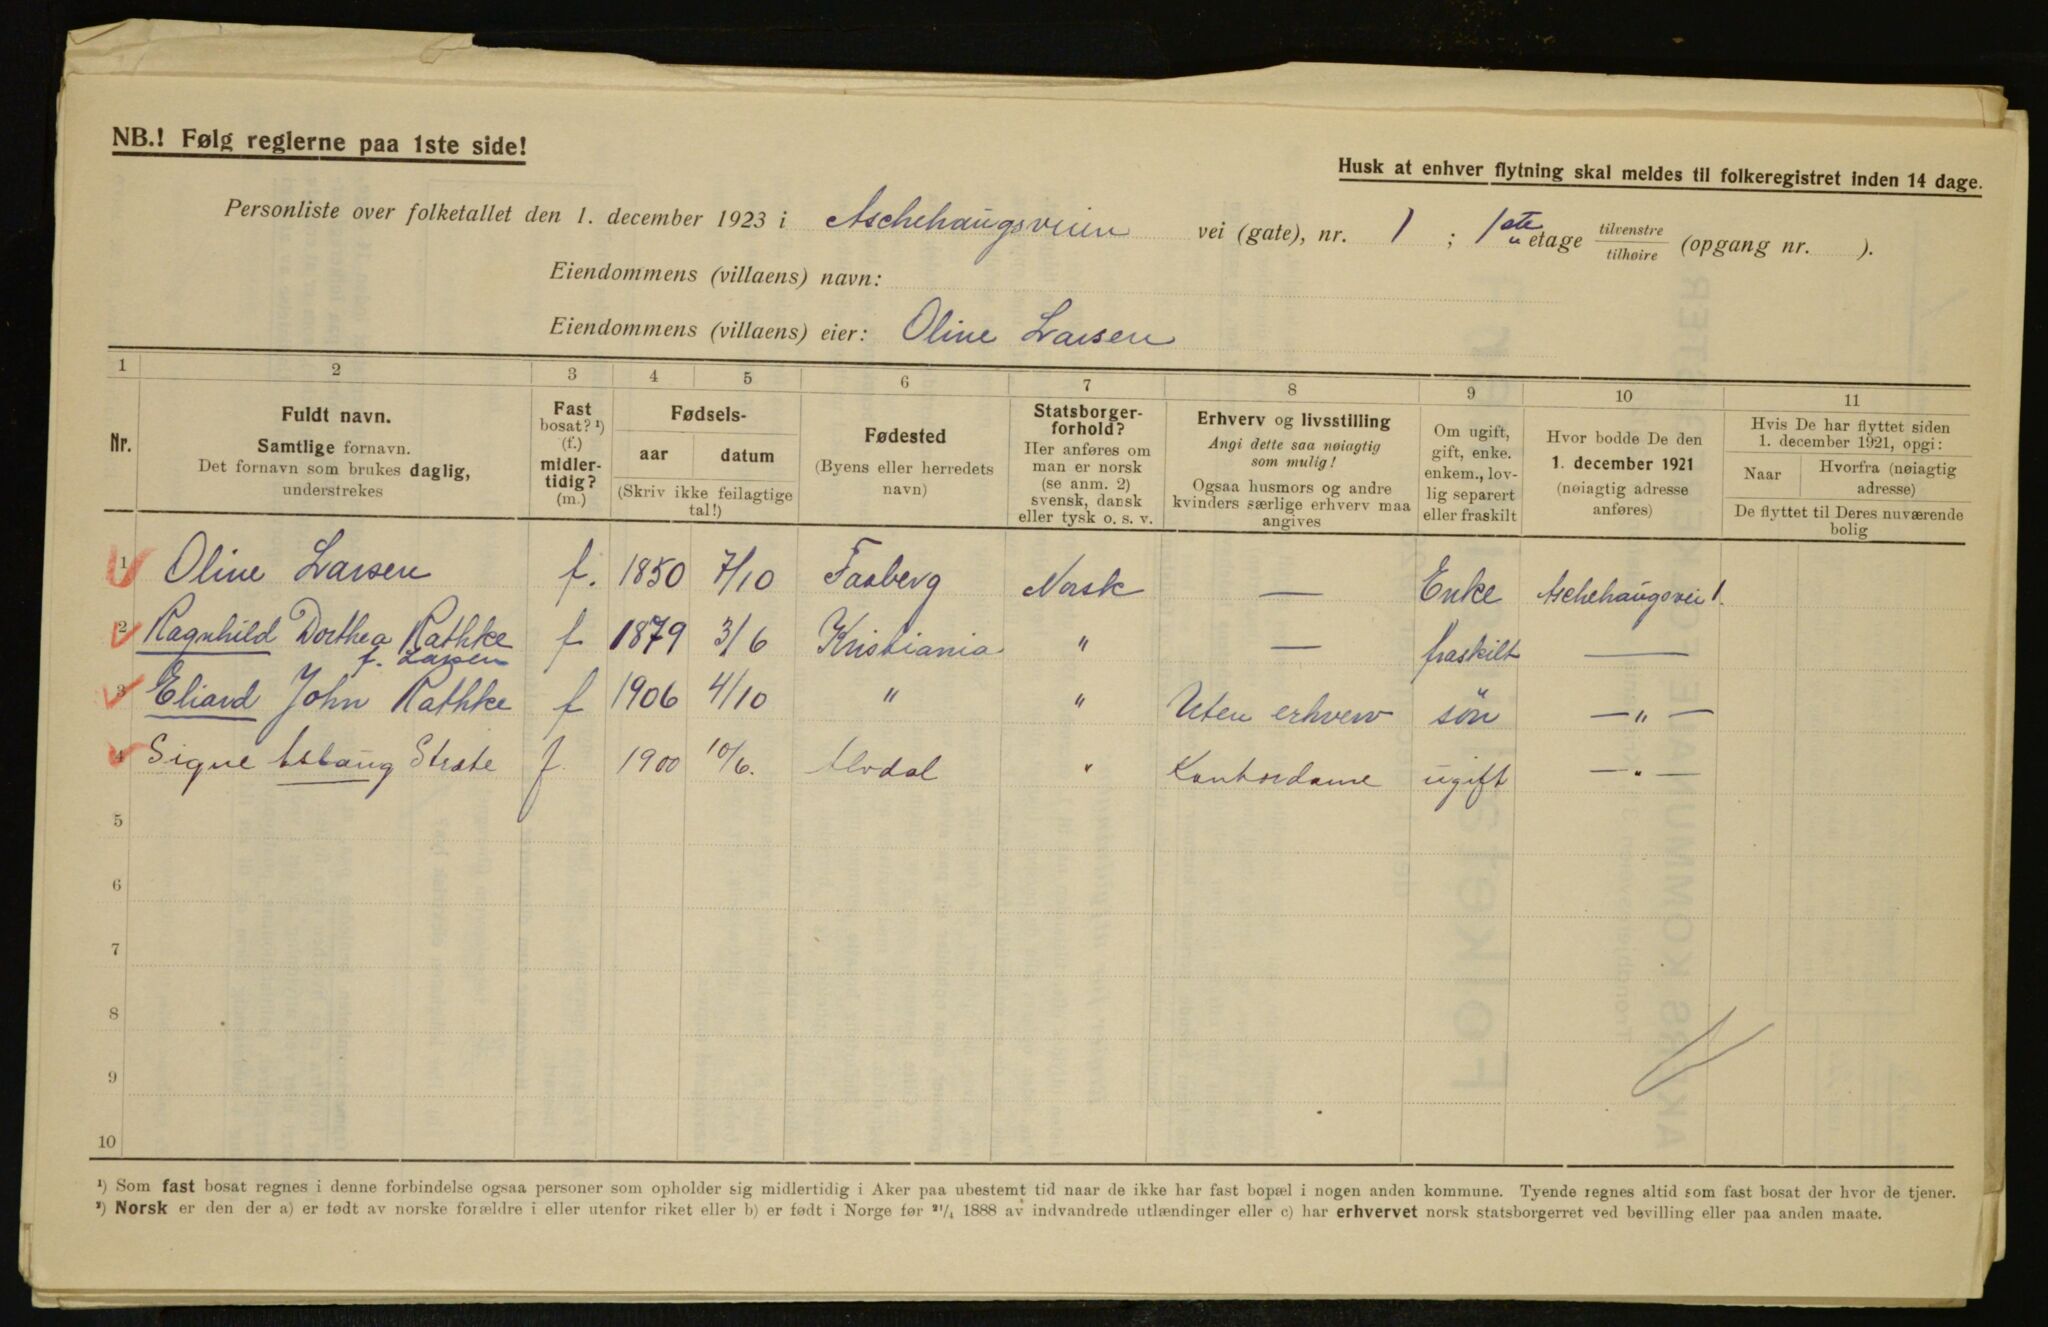 NB.! Følg reglerne paa 1ste side!
Husk at enhver flytning skal meldes til folkeregistret inden 14 dage.
Personliste over folketallet den 1. december 1923 i Aschehaugsveien vei (gate), nr. 1 ; 1ste etage tilvenstre tilhøire (opgang nr. ).
Eiendommens (villaens) navn:
Eiendommens (villaens) eier: Oline Larsen
1 2 3 4 5 6 7 8 9 10 11
Nr.
Fuldt navn.
Samtlige fornavn.
Det fornavn som brukes daglig,
understrekes
Fast
bosat? ¹)
(f.)
midler-
tidig?
(m.)
Fødsels-
aar datum
(Skriv ikke feilagtige
tal!)
Fødested
(Byens eller herredets
navn)
Statsborger-
forhold?
Her anføres om
man er norsk
(se anm. 2)
svensk, dansk
eller tysk o. s. v.
Erhverv og livsstilling
Angi dette saa nøiagtig
som mulig!
Ogsaa husmors og andre
kvinders særlige erhverv maa
angives
Om ugift,
gift, enke.
enkem., lov-
lig separert
eller fraskilt
Hvor bodde De den
1. december 1921
(nøiagtig adresse
anføres)
Hvis De har flyttet siden
1. december 1921, opgi:
Naar Hvorfra (nøiagtig
adresse)
De flyttet til Deres nuværende
bolig
1 Oline Larsen f. 1850 7/10 Faaberg Norsk — Enke Aschehaugsvei 1.
2 Ragnhild Dorthea Rathke f 1879 3/6 Kristiania " — fraskilt —
f. Larsen
3 Eliard John Rathke f 1906 4/10 " " Uten erhverv sön — " —
4 Signe Aslaug Strøte f. 1900 10/6. Alvdal " Kontordame ugift — " —
5
6
7
8
9
10
¹) Som fast bosat regnes i denne forbindelse ogsaa personer som opholder sig midlertidig i Aker paa ubestemt tid naar de ikke har fast bopæl i nogen anden kommune. Tyende regnes altid som fast bosat der hvor de tjener.
²) Norsk er den der a) er født av norske forældre i eller utenfor riket eller b) er født i Norge før ²¹/₄ 1888 av indvandrede utlændinger eller c) har erhvervet norsk statsborgerret ved bevilling eller paa anden maate.